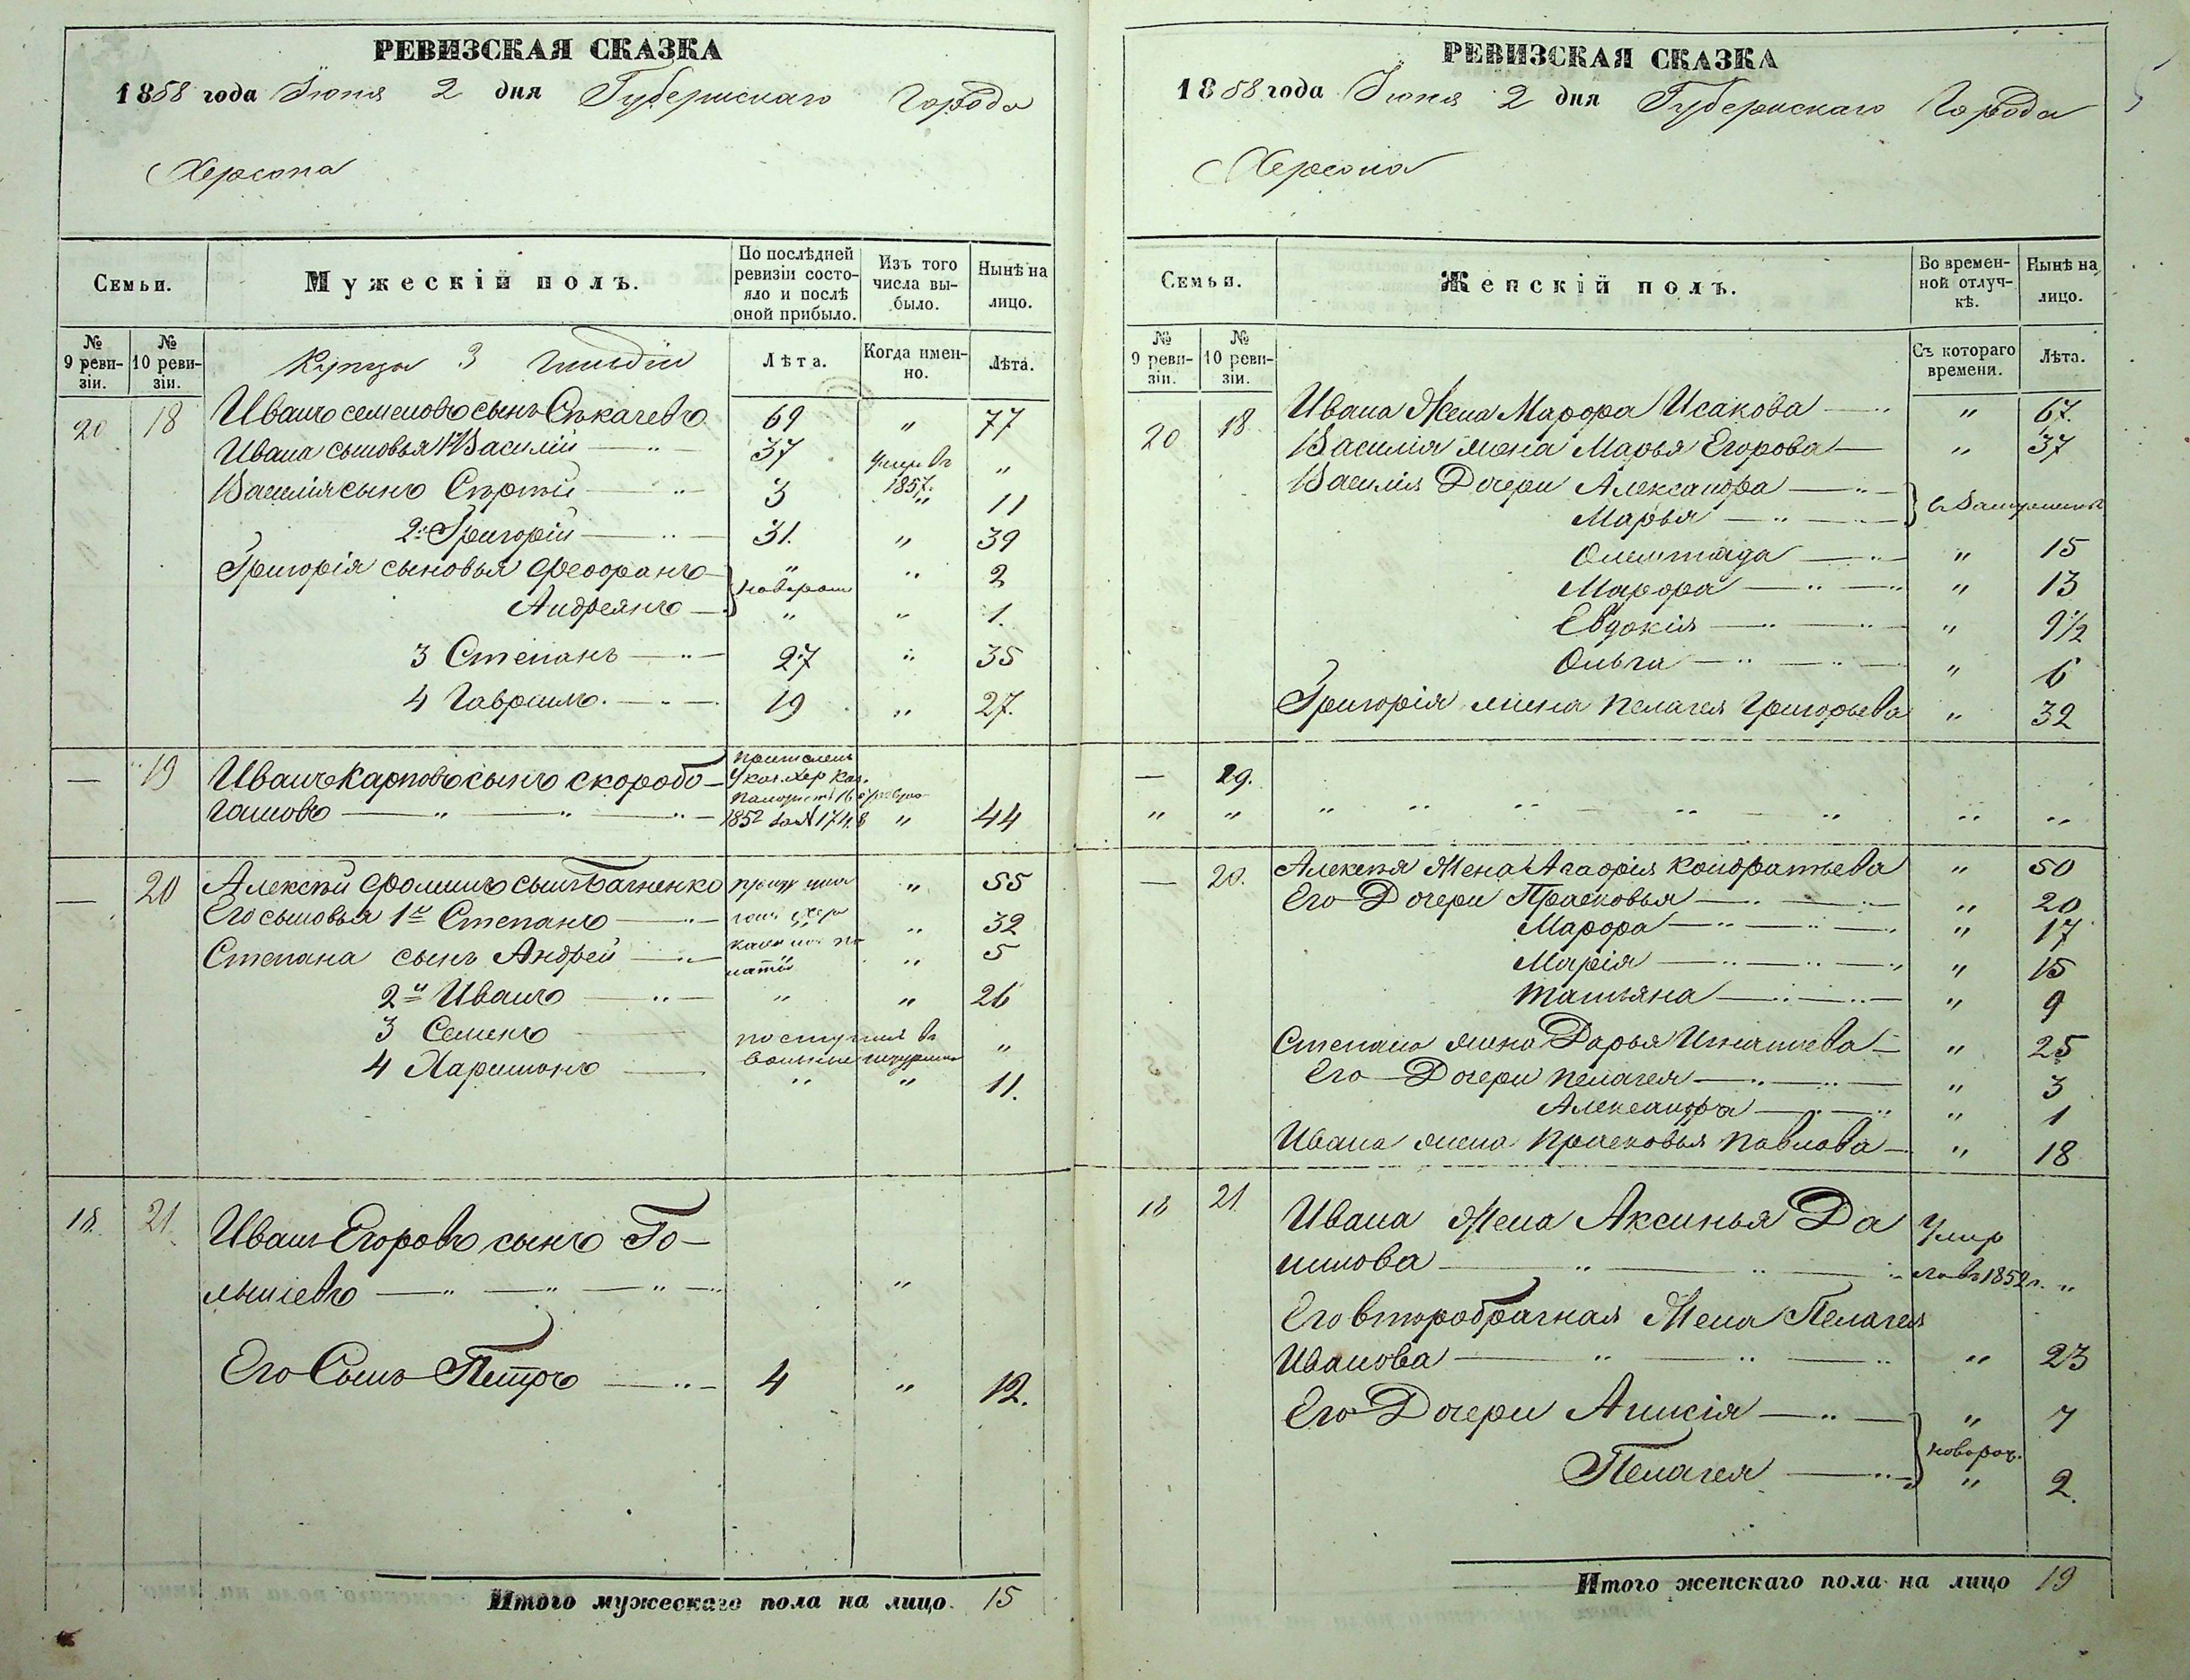 РЕВИЗСКАЯ СКАЗКА
1858 года Июня 2 дня Губернскаго Города
Херсона
Семьи.
Мужескій полъ.
По послѣдней ревизіи состояло и послѣ оной прибыло.
Изъ того числа выбыло.
Нынѣ на лицо.
№ 9 ревизіи.
№ 10 ревизіи.
Купцы 3 Гильдіи
Лѣта.
Когда именно.
Лѣта.
20 18 Иванъ Семеновъ сынъ 69 " 77
Ивана сыновья 1й Василій 37 умеръ въ 1857. "
Василія сынъ Сергѣй 3 " 11
2. Григорій 31. " 39
Григорія сыновья Феофанъ " новорож " 2
Андреянъ " " 1.
3 Степанъ 27 " 35
4 Гавріилъ. 19 " 27.
— 19 Иванъ Карповъ сынъ Скоробо-
гатовъ 1852 за № 1748 " 44
— 20 Алексѣй Фоминъ сынъ Багненко " 55
Его сыновья 1й Степанъ " 32
Степана сынъ Андрей " 5
2й Иванъ " " 26
3 Семенъ поступилъ въ "
4 Харитонъ " " 11.
18. 21. Иванъ Егоровъ сынъ Го-
"
Его Сынъ Петръ 4 " 12.
Итого мужескаго пола на лицо. 15
РЕВИЗСКАЯ СКАЗКА
1858 года Июня 2 дня Губернскаго Города
Херсона
Семьи.
Женскій полъ.
Во временной отлучкѣ.
Нынѣ на лицо.
№ 9 ревизіи.
№ 10 ревизіи.
Съ котораго времени.
Лѣта.
20 18 Ивана Жена Марфа Исакова " 67.
Василія жена Марья Егорова " 37
Василія Дочери Александра
Марья } въ Замужествѣ
" 15
Марфа " 13
Евдокія " 9½
Ольга " 6
Григорія жена Пелагея Григорьева " 32
— 29.
" " " " " " " " "
— 20. Алексѣя Жена Агафія Кондратьева " 50
Его Дочери Прасковья " 20
Марфа " 17
Марія " 15
Татьяна " 9
Степана жена Дарья Игнатьева " 25
Его Дочери Пелагея " 3
Александра " 1
Ивана жена Прасковья Павлова " 18
18 21. Ивана Жена Аксинья Да
нилова Умер
ла въ 1852 г. "
Его второбрачная Жена Пелагея
Иванова " 23
Его Дочери Анисія " 7
новорож.
Пелагея " 2.
Итого женскаго пола на лицо 19